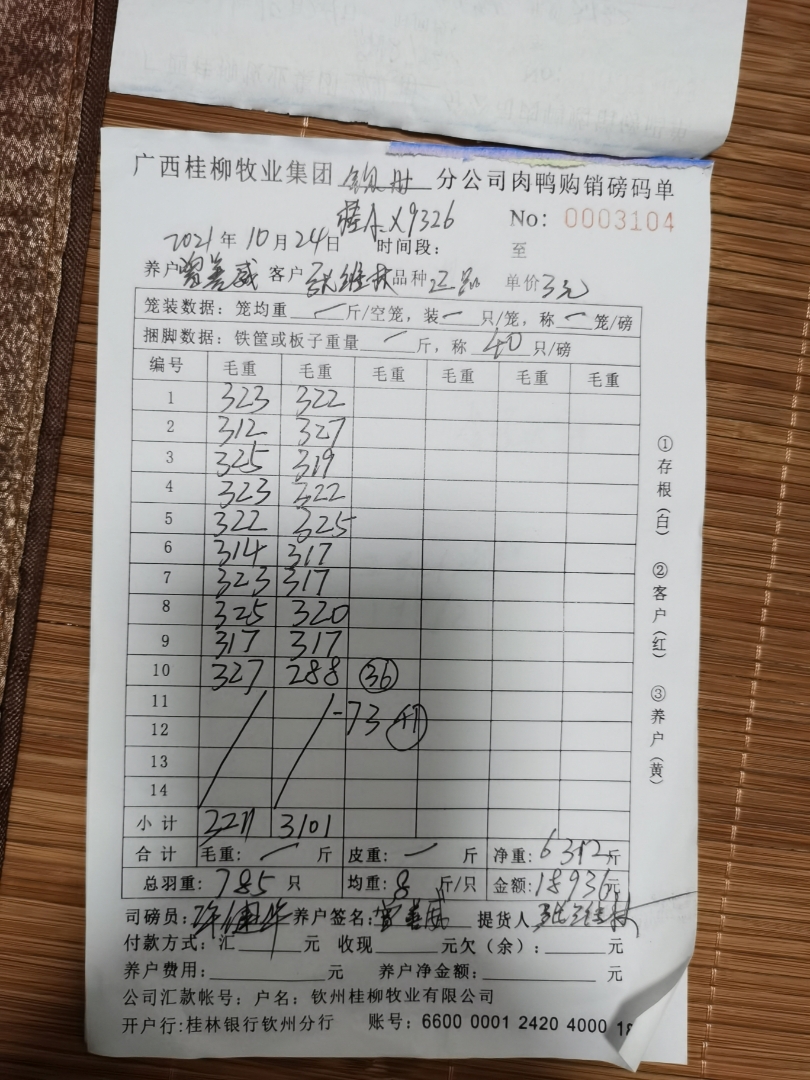 广西桂柳牧业集团 钦州 分公司肉鸭购销磅码单
桂A·X9326 No: 0003104
2021年10月24日 时间段: 至
养户曾善威 客户张维林 品种正品 单价3元
笼装数据:笼均重 一 斤/空笼,装 一 只/笼,称 一 笼/磅
捆脚数据:铁筐或板子重量 一 斤,称 40 只/磅
编号 毛重 毛重 毛重 毛重 毛重 毛重
1 323 322
2 312 327
3 325 319
4 323 322
5 322 325
6 314 317
7 323 317
8 325 320
9 317 317
10 327 288 36
11
12 -73 41
13
14
小计 3211 3101
合计 毛重: 一 斤 皮重: 一 斤 净重: 6312斤
总羽重: 785 只 均重: 8 斤/只 金额: 18936元
司磅员: 养户签名: 曾善威 提货人 张维林
付款方式:汇 元 收现 元欠(余): 元
养户费用: 元 养户净金额: 元
公司汇款帐号:户名:钦州桂柳牧业有限公司
开户行:桂林银行钦州分行 账号: 6600 0001 2420 4000 18
①存根(白) ②客户(红) ③养户(黄)